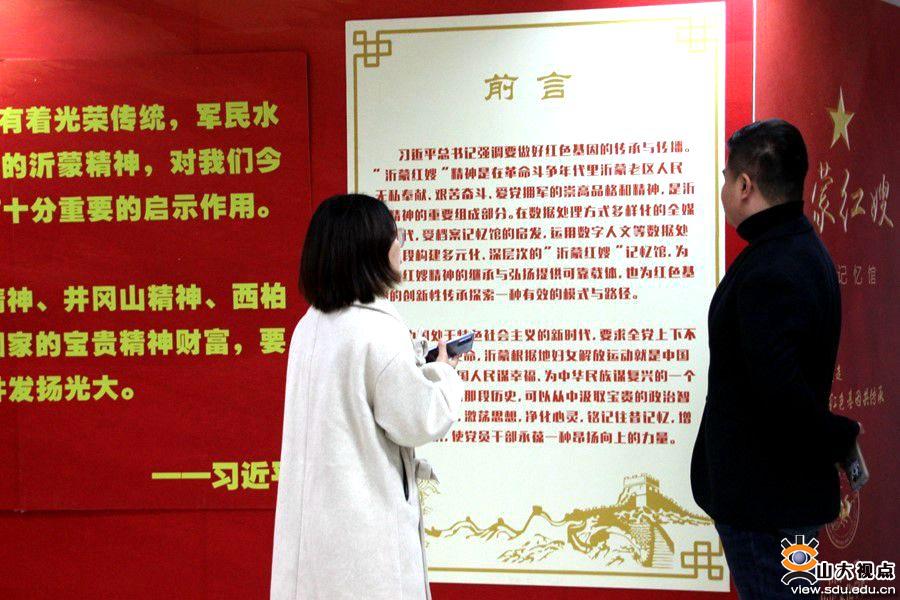 有着光荣传统，军民水
的沂蒙精神，对我们今
十分重要的启示作用。
精神、井冈山精神、西柏
国家的宝贵精神财富，要
发扬光大。
——习近平
前言
习近平总书记强调要做好红色基因的传承与传播。
“沂蒙红嫂”精神是在革命斗争年代里沂蒙老区人民
无私奉献、艰苦奋斗、爱党拥军的崇高品格和精神，是沂
精神的重要组成部分。在数据处理方式多样化的全媒
代，受档案记忆馆的启发，运用数字人文等数据处
段构建多元化、深层次的“沂蒙红嫂”记忆馆，为
红嫂精神的继承与弘扬提供可靠载体，也为红色基
的创新性传承探索一种有效的模式与路径。
处于特色社会主义的新时代，要求全党上下不
命，沂蒙根据地妇女解放运动就是中国
国人民谋幸福、为中华民族谋复兴的一个
那段历史，可以从中汲取宝贵的政治智
，激荡思想，净化心灵，铭记往昔记忆，增
，使党员干部永葆一种昂扬向上的力量。
蒙红嫂
记忆馆
红色基因共传承
山大视点
view.sdu.edu.cn